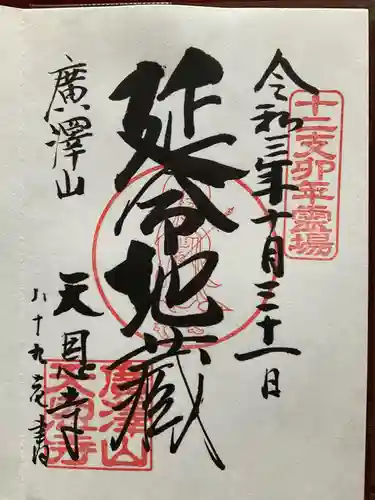 十二支卯年霊場
令和三年十月三十一日
延命地蔵
廣澤山
天恩寺
八十九老書
廣澤山
天恩寺